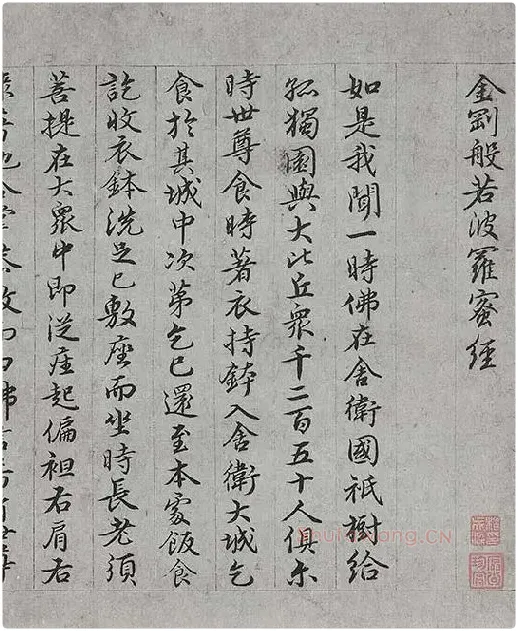 金剛般若波羅蜜經
如是我聞一時佛在舍衛國祇樹給
孤獨園與大比丘衆千二百五十人俱尒
時世尊食時著衣持鉢入舍衛大城乞
食於其城中次第乞已還至本處飯食
訖收衣鉢洗足已敷座而坐時長老須
菩提在大衆中即從座起偏袒右肩右